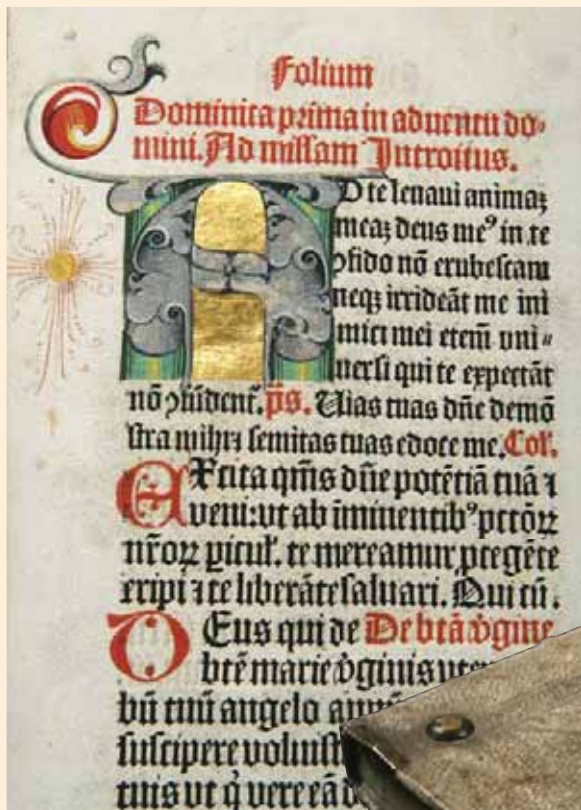 Folium
Dominica prima in aduentu do⸗
mini. Ad missam Introitus.
AD te leuaui animaꝫ
meaꝫ deus meꝰ in te
ꝯfido nō erubescam
neqꝫ irrideāt me ini
mici mei etem̄ vni⸗
uersi qui te expectāt
nō ꝯfūdent̄. p̄s. Uias tuas dn̄e demō
stra mihi ⁊ semitas tuas edoce me. Col'.
EXcita qm̄s dn̄e potētiā tuā ⁊
veni: vt ab īminentibꝰ pctōꝝ
nr̄oꝝ ꝑicul'. te mereamur ꝓtegēte
eripi ⁊ te liberāte saluari. Qui cū.
DEus qui de De btā v̓gine
btē marie v̓ginis vte
bū tuū angelo
suscipere voluist
tuis vt q̇ vere eā